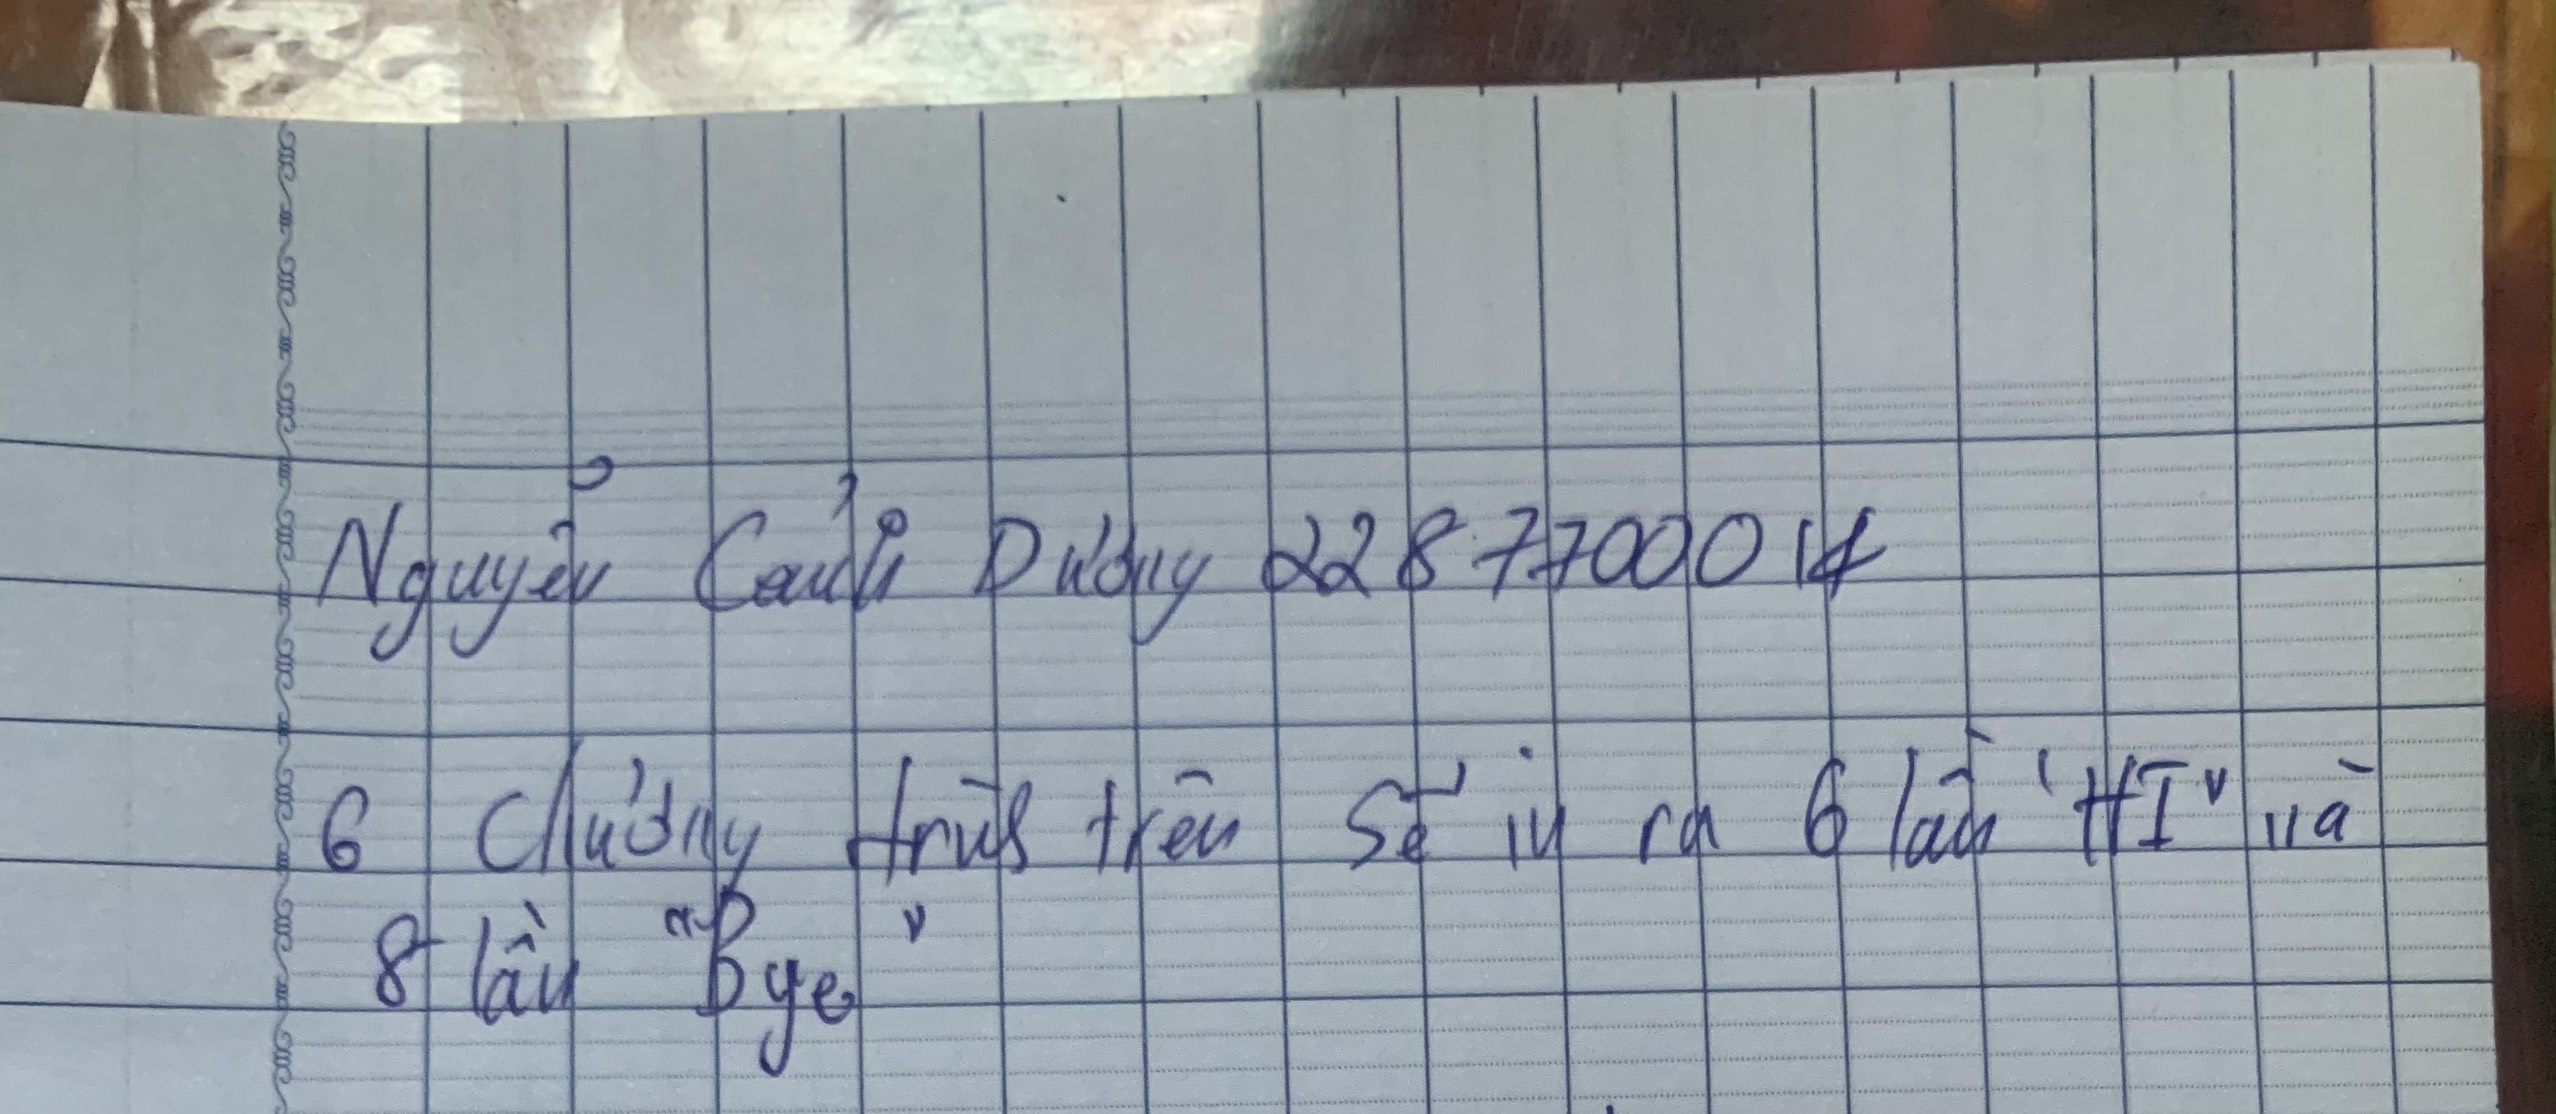 Nguyễn Cảnh Dương 2287700014
6 chương trình trên sẽ in ra 6 lần "HI" và
8 lần "Bye"